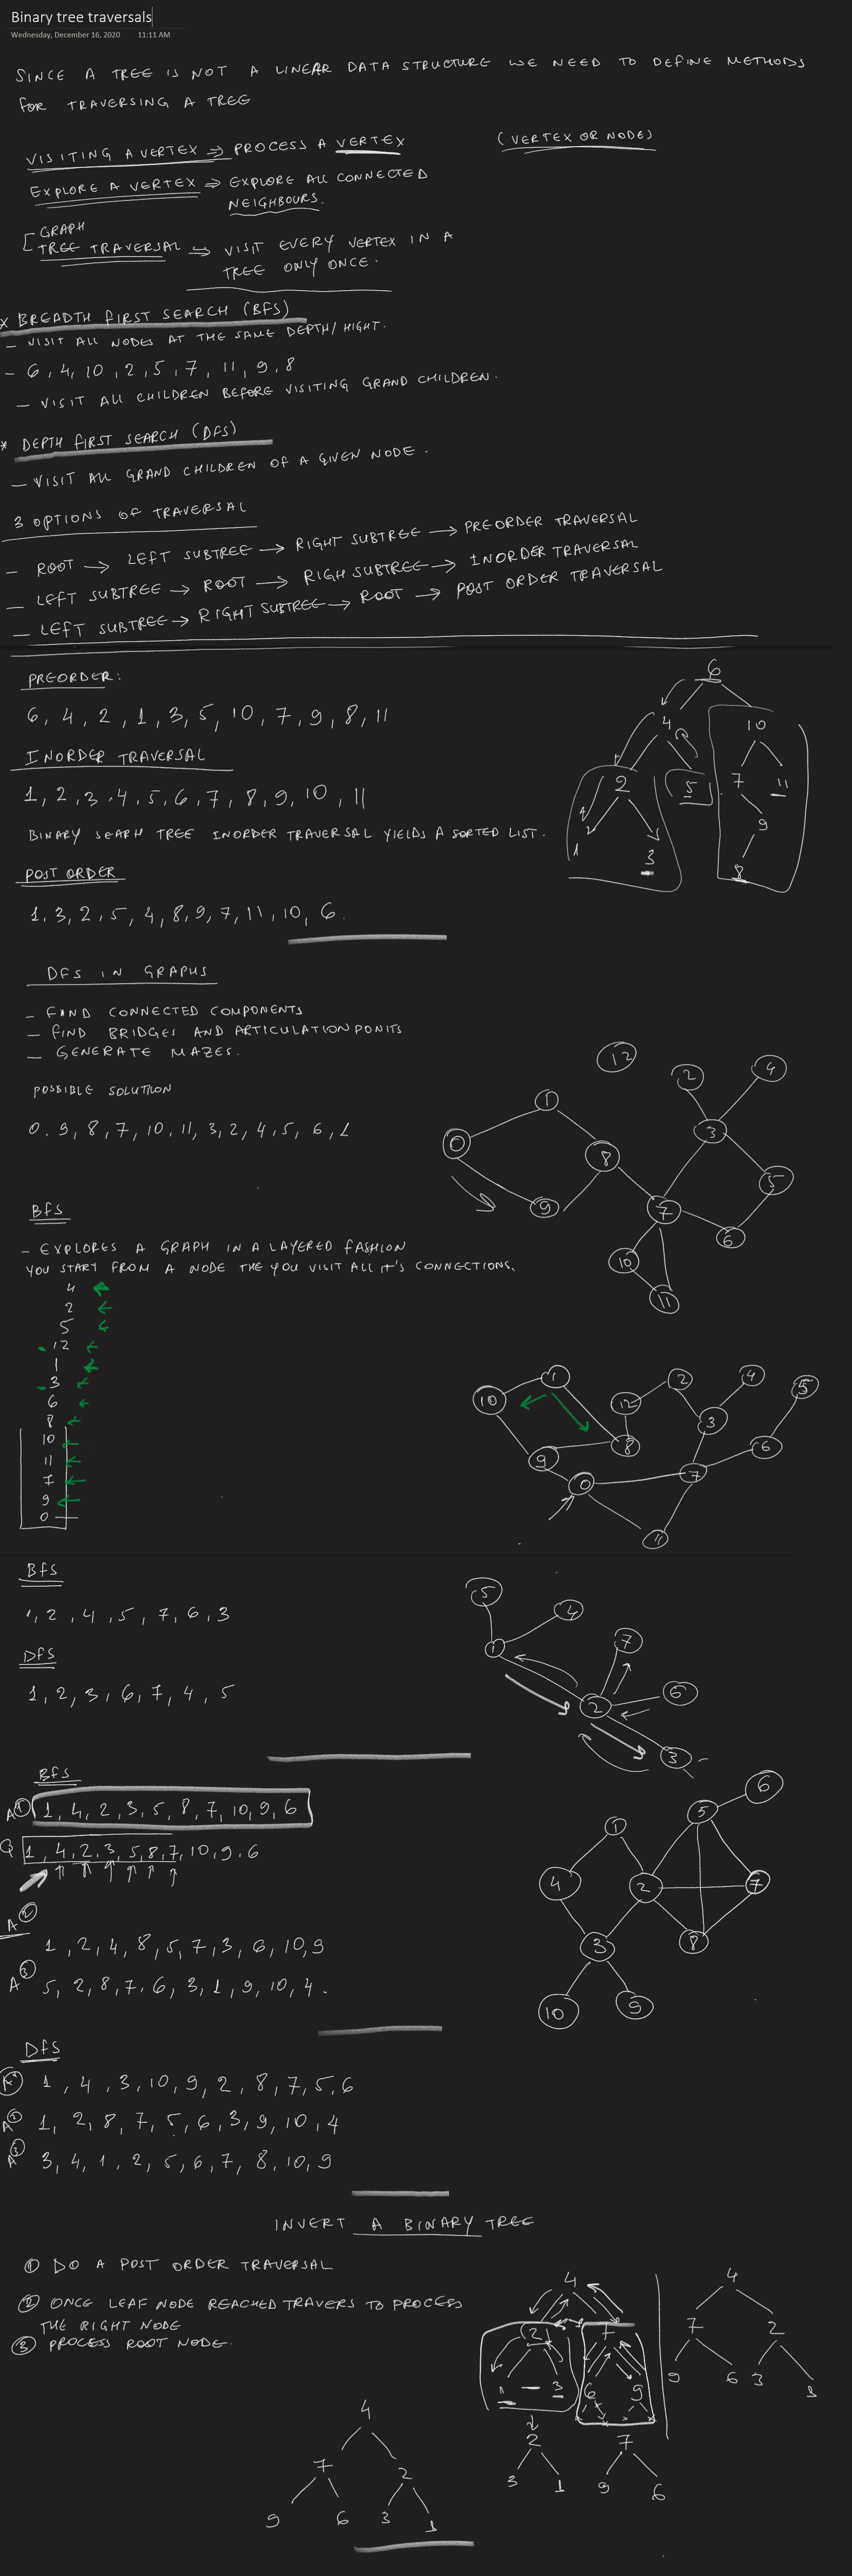 Binary tree traversals
Wednesday, December 16, 2020 11:11 AM
SINCE A TREE IS NOT A LINEAR DATA STRUCTURE WE NEED TO DEFINE METHODS
FOR TRAVERSING A TREE
VISITING A VERTEX => PROCESS A VERTEX
(VERTEX OR NODE)
EXPLORE A VERTEX => EXPLORE ALL CONNECTED
NEIGHBOURS.
GRAPH
TREE TRAVERSAL → VISIT EVERY VERTEX IN A
TREE ONLY ONCE.
X BREADTH FIRST SEARCH (BFS)
- VISIT ALL NODES AT THE SAME DEPTH/HIGHT.
- 6, 4, 10, 2, 5, 7, 11, 9, 8
- VISIT ALL CHILDREN BEFORE VISITING GRAND CHILDREN.
* DEPTH FIRST SEARCH (DFS)
- VISIT ALL GRAND CHILDREN OF A GIVEN NODE.
3 OPTIONS OF TRAVERSAL
- ROOT → LEFT SUBTREE → RIGHT SUBTREE → PREORDER TRAVERSAL
- LEFT SUBTREE → ROOT → RIGH SUBTREE → INORDER TRAVERSAL
- LEFT SUBTREE → RIGHT SUBTREE → ROOT → POST ORDER TRAVERSAL
PREORDER:
6, 4, 2, 1, 3, 5, 10, 7, 9, 8, 11
INORDER TRAVERSAL
1, 2, 3, 4, 5, 6, 7, 8, 9, 10, 11
BINARY SEARH TREE INORDER TRAVERSAL YIELDS A SORTED LIST.
POST ORDER
1, 3, 2, 5, 4, 8, 9, 7, 11, 10, 6.
6
4 10
2 5 7 11
1 3 9
8
DFS IN GRAPHS
- FIND CONNECTED COMPONENTS
- FIND BRIDGES AND ARTICULATION PONITS
- GENERATE MAZES.
POSSIBLE SOLUTION
0. 9, 8, 7, 10, 11, 3, 2, 4, 5, 6, 1
12
2 4
1 3
0 8
5
9 7
6
10
11
BFS
- EXPLORES A GRAPH IN A LAYERED FASHION
YOU START FROM A NODE THE YOU VISIT ALL IT'S CONNECTIONS.
4
2
5
12
1
3
6
8
10
11
7
9
0
1 2 4 5
10 12 3
9 8 6
0 7
11
BFS
1, 2, 4, 5, 7, 6, 3
DFS
1, 2, 3, 6, 7, 4, 5
5 4
1 7
2 6
3
BFS
A① 1, 4, 2, 3, 5, 8, 7, 10, 9, 6
Q 1, 4, 2, 3, 5, 8, 7, 10, 9, 6
A② 1, 2, 4, 8, 5, 7, 3, 6, 10, 9
A③ 5, 2, 8, 7, 6, 3, 1, 9, 10, 4.
6
1 5
4 2 7
3 8
10 9
DFS
A① 1, 4, 3, 10, 9, 2, 8, 7, 5, 6
A② 1, 2, 8, 7, 5, 6, 3, 9, 10, 4
A③ 3, 4, 1, 2, 5, 6, 7, 8, 10, 9
INVERT A BINARY TREE
① DO A POST ORDER TRAVERSAL
② ONCE LEAF NODE REACHED TRAVERS TO PROCESS
THE RIGHT NODE
③ PROCESS ROOT NODE.
4
2 7
1 3 6 9
2 7
3 1 9 6
4
7 2
9 6 3 1
4
7 2
9 6 3 1